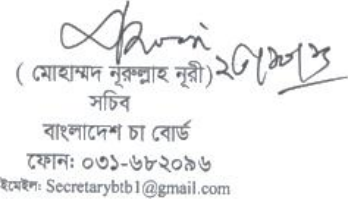 ( মোহাম্মদ নূরুল্লাহ নূরী )
সচিব
বাংলাদেশ চা বোর্ড
ফোন: ০৩১-৬৮২০৯৬
ইমেইল: Secretarybtb1@gmail.com